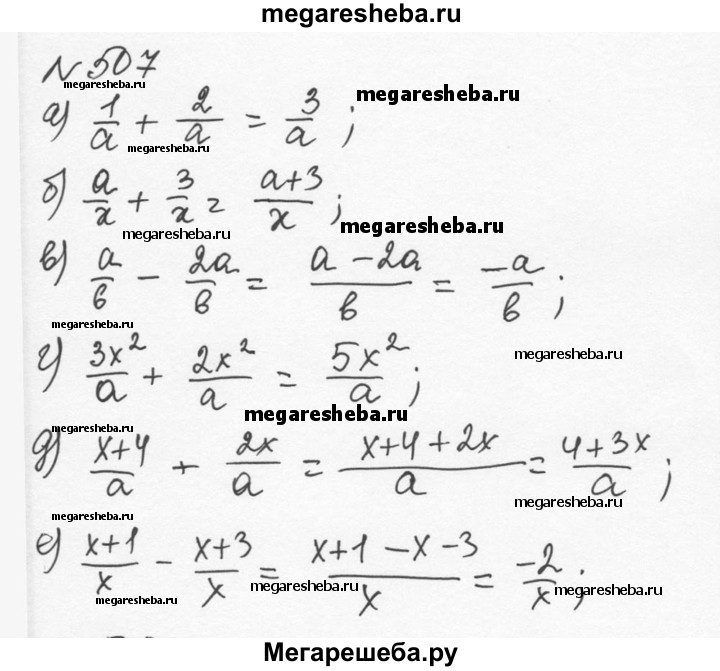 megaresheba.ru
№ 507
megaresheba.ru
а) 1/a + 2/a = 3/a ;
megaresheba.ru
megaresheba.ru
б) a/x + 3/x = (a+3)/x ;
megaresheba.ru
megaresheba.ru
в) a/b − 2a/b = (a − 2a)/b = −a/b ;
megaresheba.ru
megaresheba.ru
г) 3x²/a + 2x²/a = 5x²/a ;
megaresheba.ru
megaresheba.ru
д) (x+4)/a + 2x/a = (x+4+2x)/a = (4+3x)/a ;
megaresheba.ru
megaresheba.ru
е) (x+1)/x − (x+3)/x = (x+1−x−3)/x = −2/x ;
megaresheba.ru
megaresheba.ru
megaresheba.ru
Мегарешеба.ру